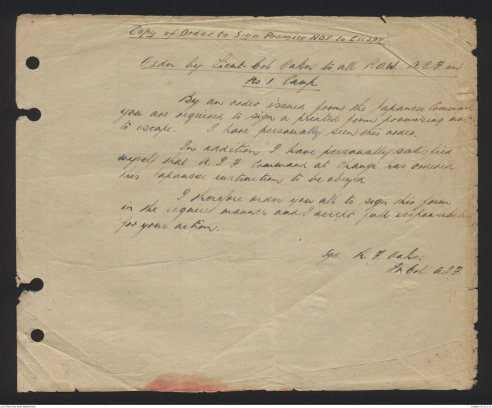 Copy of Order to Sign Promise NOT to Escape.
Order by Lieut-Col Oakes to all P.O.W. A.I.F. in
No 1 Camp
By an order issued from the Japanese Command
you are required to sign a printed form promising not
to escape. I have personally seen this order.
In addition I have personally satisfied
myself that A.I.F. Command at Changi has ordered
this Japanese instruction to be obeyed.
I therefore order you all to sign this form
in the required manner and I accept full responsibility
for your action.
R. F. Oakes
Lt. Col. A.I.F.